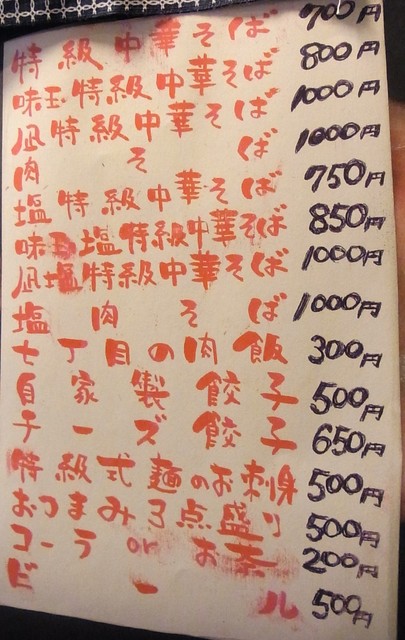 特級中華そば 700円
味玉特級中華そば 800円
凪特級中華そば 1000円
肉そば 1000円
塩特級中華そば 750円
味玉塩特級中華そば 850円
凪塩特級中華そば 1000円
塩肉そば 1000円
七丁目の肉飯 300円
自家製餃子 500円
チーズ餃子 650円
特級式麺のお刺身 500円
おつまみ3点盛り 500円
コーラorお茶 200円
ビール 500円